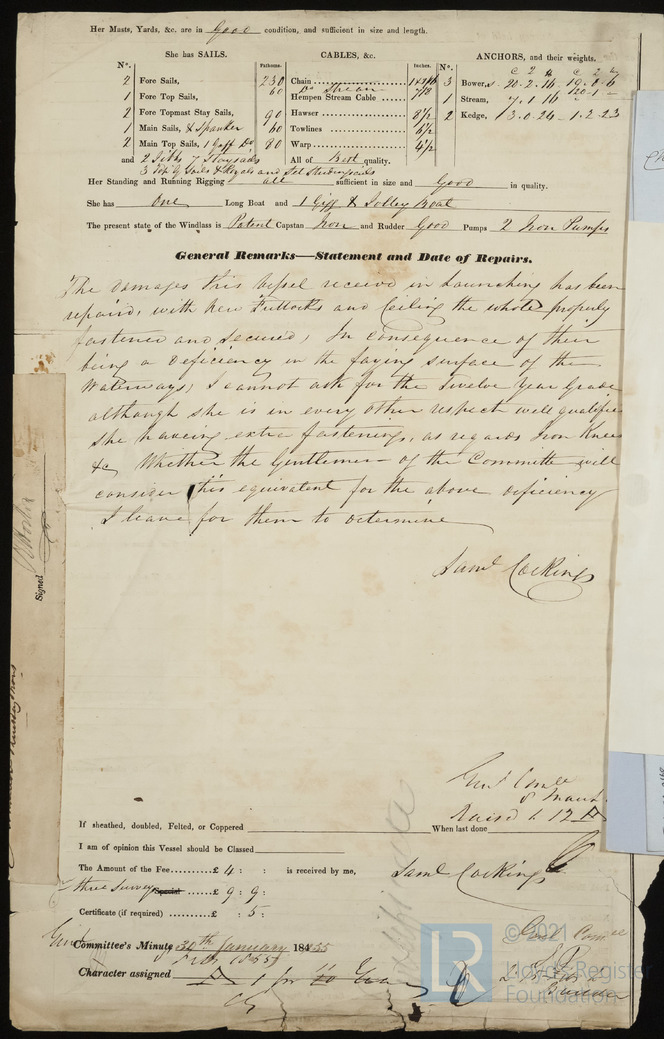 Her Masts, Yards, &c. are in Good condition, and sufficient in size and length.
She has SAILS.
CABLES, &c.
ANCHORS, and their weights.
No.
Fathoms.
Inches.
No.
2 Fore Sails,
230
Chain
3 Bower,s
1 Fore Top Sails,
60
Hempen Stream Cable
7/8
1 Stream,
7.1.16
2 Fore Topmast Stay Sails,
90
Hawser
8 1/2
2 Kedge,
3.0.24
1.2.23
1 Main Sails, & Spanker
60
Towlines
6 1/2
2 Main Top Sails, 1 Gaff Do
80
Warp
4 1/2
and 2 Jibbs 7 Staysails
All of Best quality.
3 Top G Sails & Royals and Set Studdingsails
Her Standing and Running Rigging all sufficient in size and Good in quality.
She has One Long Boat and 1 Gigg & Jolley Boat
The present state of the Windlass is Patent Capstan Iron and Rudder Good Pumps 2 Iron Pumps
General Remarks—Statement and Date of Repairs.
The damages this vessel received in Launching has been
repaired, with New Futtocks and Ceiling the whole properly
fastened and secured, In consequence of their
being a deficiency in the faying surface of the
Waterways, I cannot ask for the Twelve Year Grade
although she is in every other respect well qualified
She having extra fastening, as regards Iron Knees
&c Whether the Gentlemen of the Committe will
consider this equivalent for the above deficiency
I leave for them to determine
Saml Cocking
Signed
Raised to 12 A
If sheathed, doubled, Felted, or Coppered
When last done
I am of opinion this Vessel should be Classed
The Amount of the Fee £ 4 : : is received by me,
Saml Cocking
three Surveys Special £ 9 : 9 :
Certificate (if required) £ : 5 :
Committee's Minute 30th January 1855
Character assigned A 1 for 10 Years
© 2021
LR
Lloyd's Register
Foundation